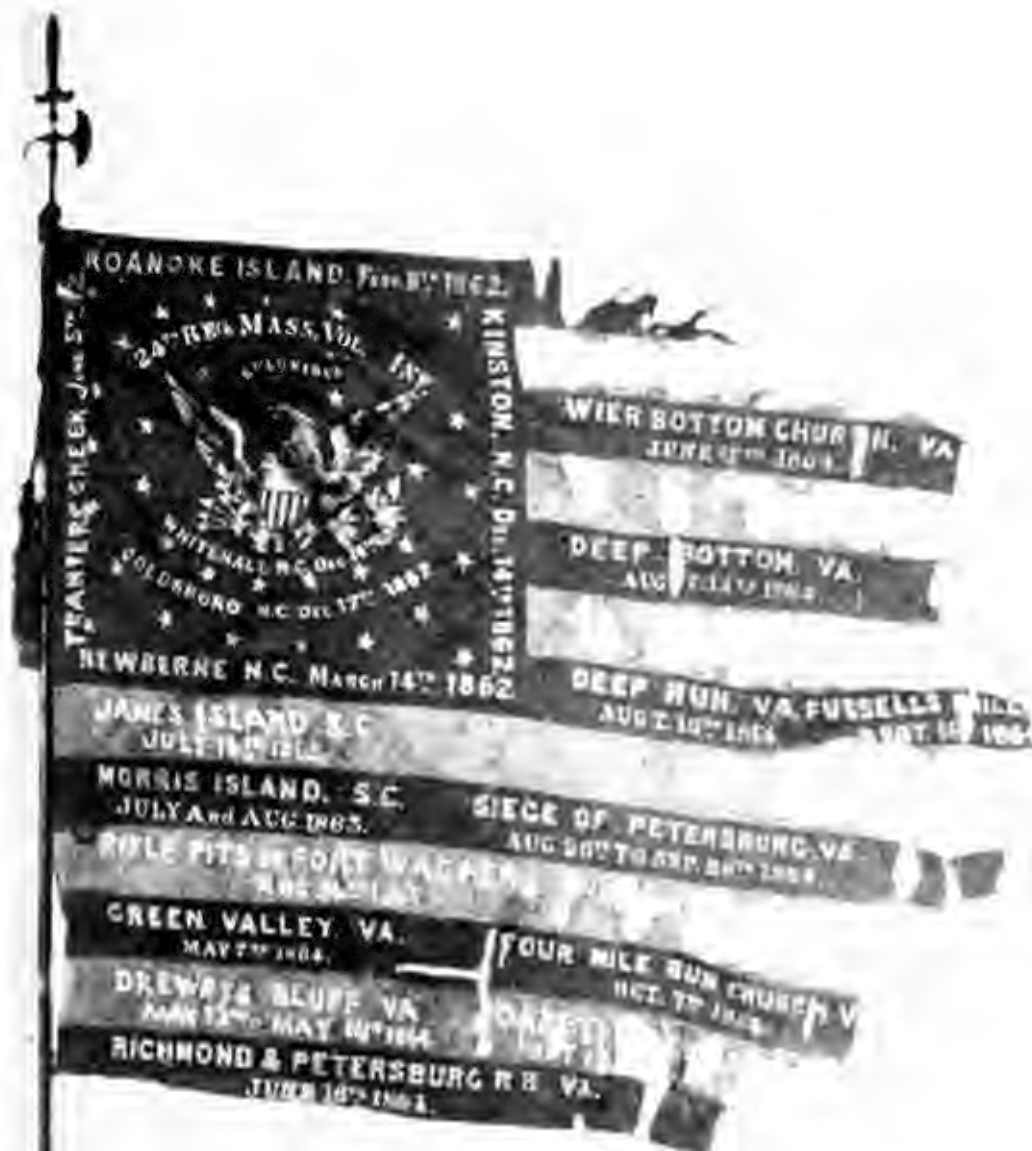 ROANOKE ISLAND. FEBY. 8TH 1862.
TRANTERS CREEK JUNE 5TH
24TH REG. MASS. VOL. INF.
KINSTON. N.C. DEC. 14TH 1862
WHITEHALL N.C. DEC
GOLDSBORO N.C. DEC. 17TH 1862
NEWBERNE N.C. MARCH 14TH 1862
WIER BOTTOM CHUR H. VA
JUNE 1864.
DEEP BOTTOM. VA.
AUG 14TH 1864.
DEEP RUN. VA. FUSSELLS
AUGT. 16TH 1864 1864
JAMES ISLAND S.C.
JULY 16TH
MORRIS ISLAND. S.C.
JULY And AUG 1863.
SIEGE OF PETERSBURG. VA.
AUG TO SEP. 1864.
RIFLE PITS FORT WAGNER
GREEN VALLEY VA.
MAY 7TH 1864.
FOUR MILE RUN CHURCH V
OCT. 7TH
DREWRYS BLUFF VA
MAY MAY 1864
RICHMOND & PETERSBURG R R VA.
JUNE 16TH 1864.